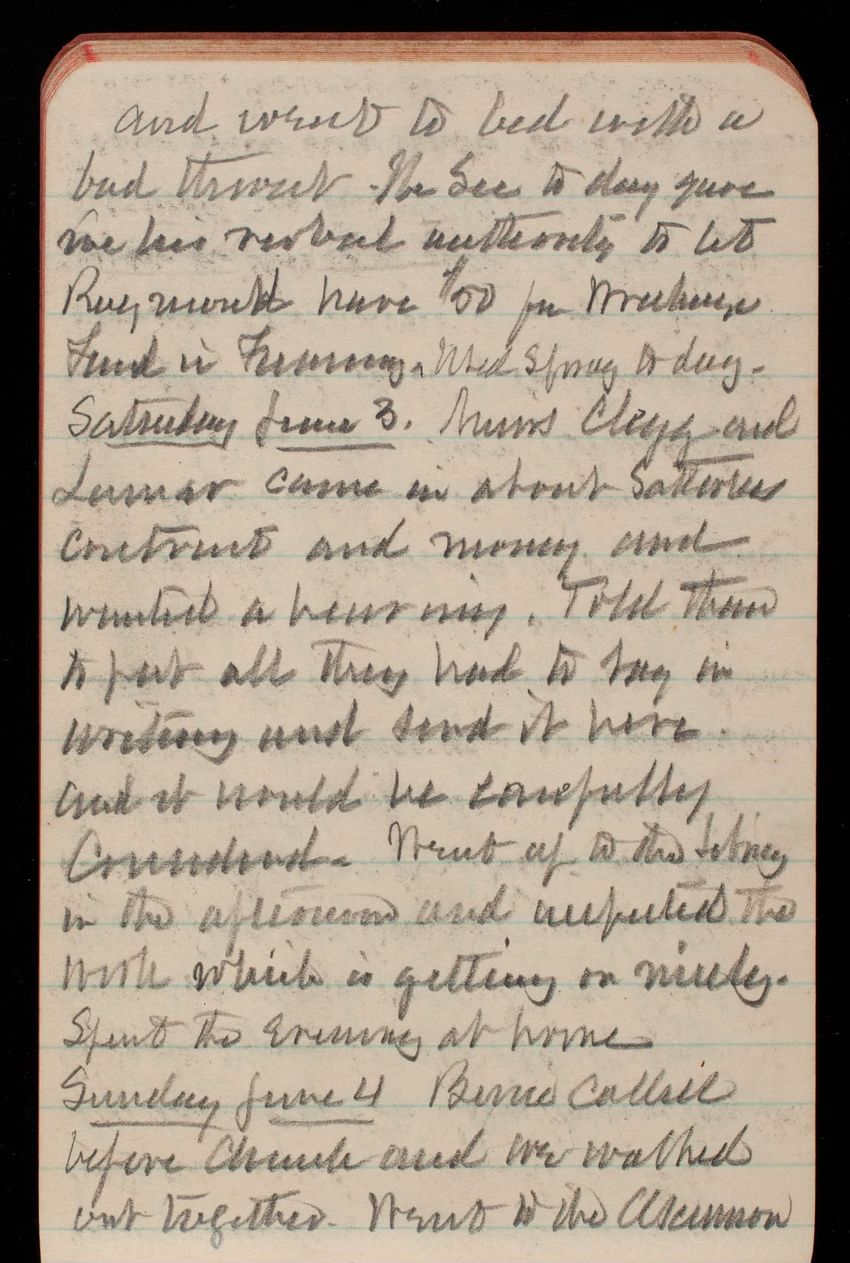 and went to bed with a
bad throat. The Sec to day gave
me his verbal authority to let
Raymond have $50 for
Fund in Treasury. to day.
Saturday June 3. Clegg and
Lamar came in about Satterlees
contract and money and
wanted a hearing. Told them
to put all they had to say in
writing and send it here
and it would be carefully
Considered. Went up to the Library
in the afternoon and inspected the
work which is getting on nicely.
Spent the Evening at home
Sunday June 4 Bernie Called
before Church and we walked
out together. Went to the